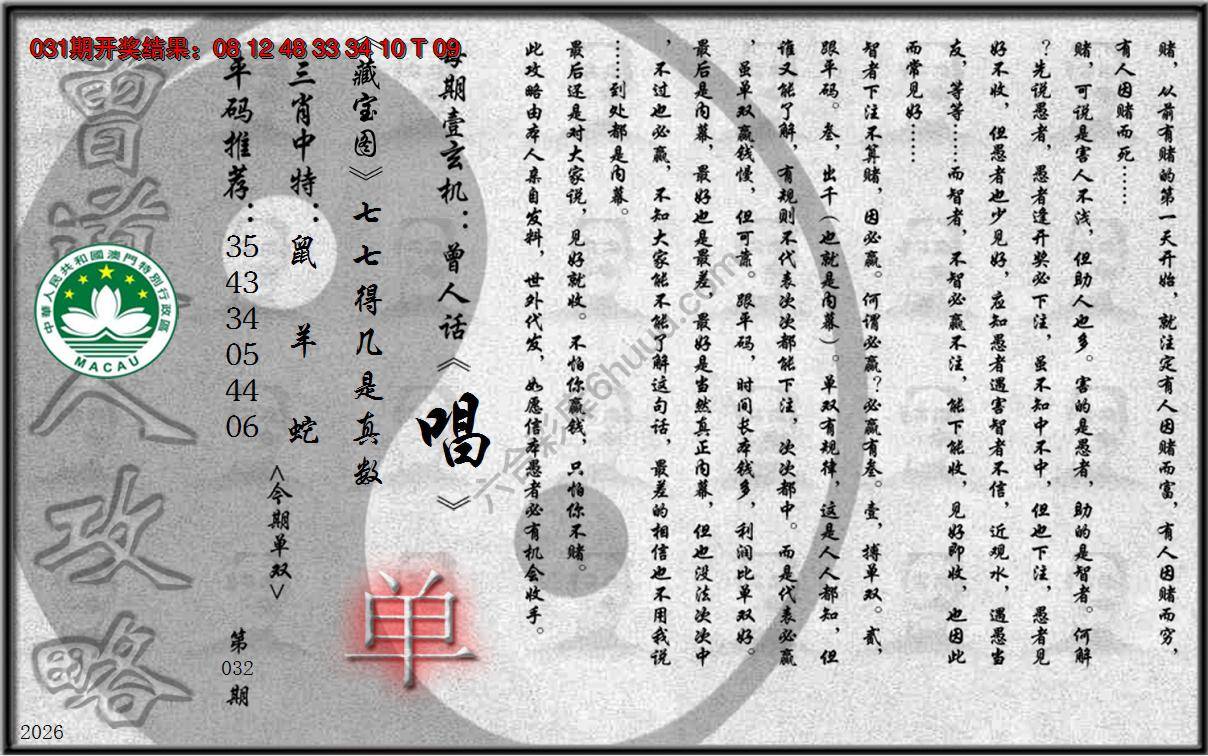 031期开奖结果：08 12 48 33 34 10 T 09
赌，从前有赌的第一天开始，就注定有人因赌而富，有人因赌而穷，
有人因赌而死……
赌，可说是害人不浅，但助人也多。害的是愚者，助的是智者。何解
？先说愚者，愚者逢开奖必下注，虽不知中不中，但也下注，愚者见
好不收，但愚者也少见好，应知愚者遇害智者不信，近观水，遇愚当
友，等等……而智者，不智必赢不注，能下能收，见好即收，也因此
而常见好……
智者下注不算赌，因必赢。何谓必赢？必赢有叁。壹，搏单双。贰，
跟平码。叁，出千（也就是内幕）。单双有规律，这是人人都知，但
谁又能了解，有规则不代表次次都能下注，次次都中。而是代表必赢
，虽单双赢钱慢，但可靠。跟平码，时间长本钱多，利润比单双好。
最后是内幕，最好也是最差，最好是当然真正内幕，但也没法次次中
，不过也必赢，不知大家能不能了解这句话，最差的相信也不用我说
……到处都是内幕。
最后还是对大家说，见好就收。不怕你赢钱，只怕你不赌。
此攻略由本人亲自发料，世外代发，如愿信本愚者必有机会收手。
每期壹玄机：曾人话《唱》
《藏宝图》七七得几是真数
单
三肖中特：鼠 羊 蛇
<今期单双>
平码推荐：35 43 34 05 44 06
第032期
曾道人攻略
中華人民共和國澳門特別行政區
MACAU
2026